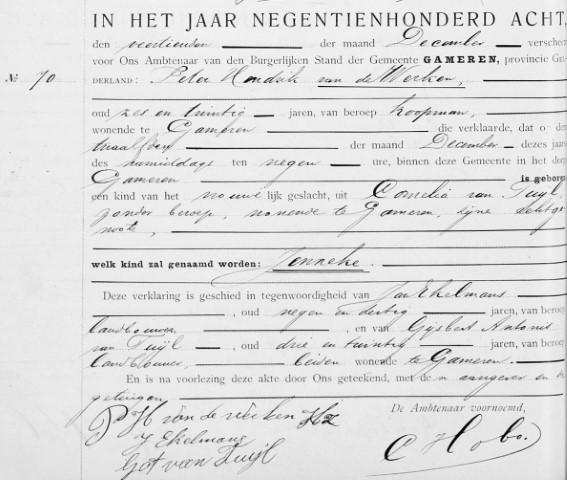 IN HET JAAR NEGENTIENHONDERD ACHT,
den veertienden der maand December verscheen
voor Ons Ambtenaar van den Burgerlijken Stand der Gemeente GAMEREN, provincie GE-
No 70 DERLAND: Peter Hendrik van de Werken,
oud zes en twintig jaren, van beroep koopman,
wonende te Gameren die verklaarde, dat op
twaalfden der maand December dezes jaars
des namiddags ten negen ure, binnen deze Gemeente in het dorp
Gameren is geboren
een kind van het vrouwelijk geslacht, uit Cornelia van Tuijl,
zonder beroep, wonende te Gameren, zijne echtge
noote,
welk kind zal genaamd worden: Jenneke.
Deze verklaring is geschied in tegenwoordigheid van Jan Ekelmans
, oud negen en dertig jaren, van beroep
landbouwer, , en van Gijsbert Antonie
van Tuijl oud drie en twintig jaren, van beroep
landbouwer, beiden wonende te Gameren.
En is na voorlezing deze akte door Ons geteekend, met den aangever en de
getuigen.
De Ambtenaar voornoemd,
P H van de werken Hz
J Ekelmans
Gst van Tuijl
C Hobo.